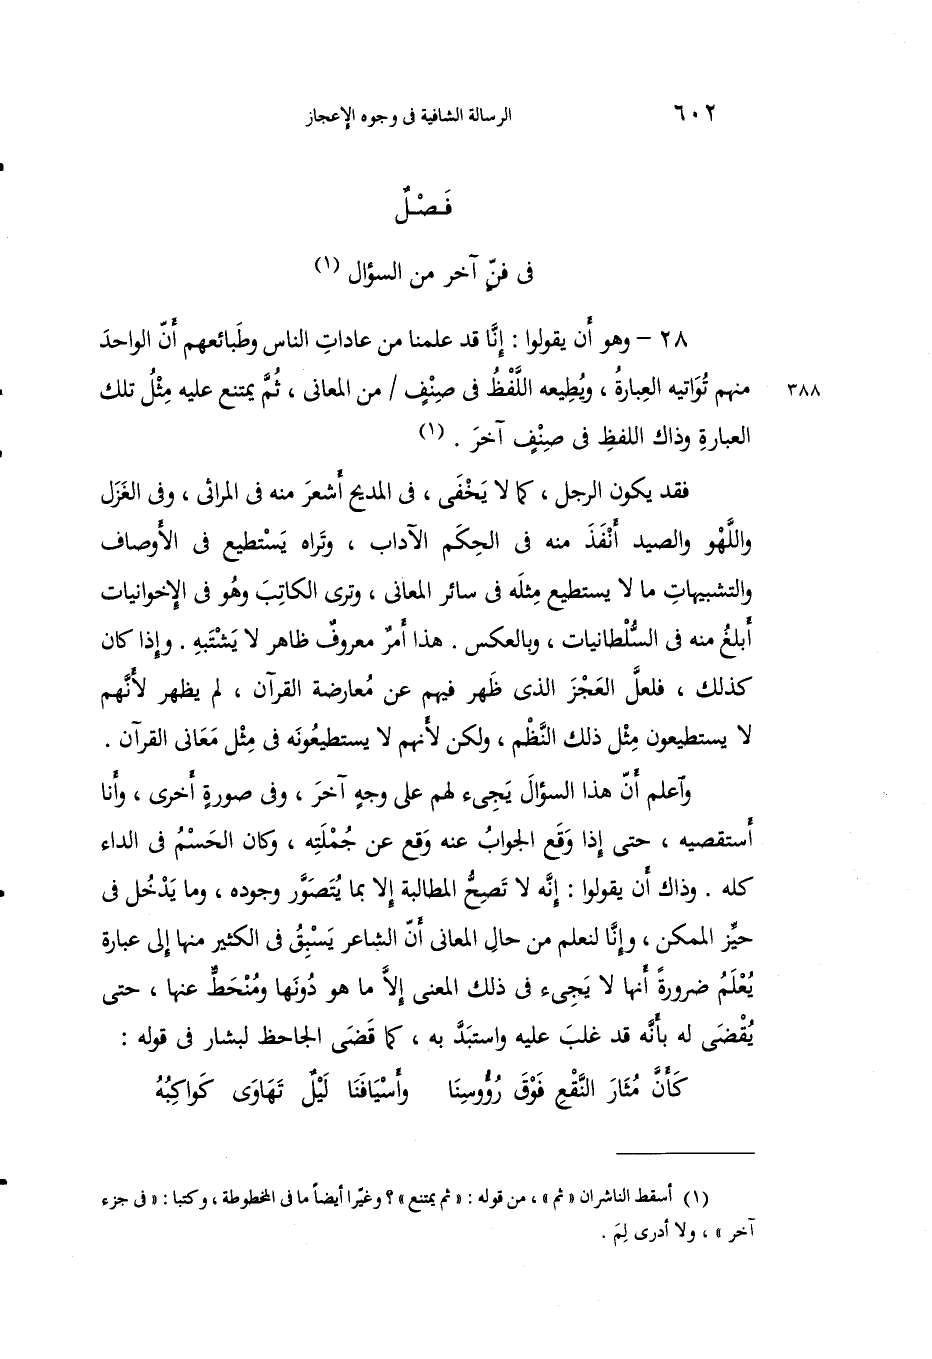 ٦٠٢ الرسالة الشافية فى وجوه الإعجاز
فَصْلٌ
فى فنّ آخر من السؤال (١)
٢٨ – وهو أَن يقولوا : إِنَّا قد علمنا من عاداتِ الناس وطَبائعهم أَنّ الواحدَ
٣٨٨ منهم تُوَاتيه العِبارةُ ، ويُطِيعه اللَّفْظُ فى صِنْفٍ / من المعانى ، ثُمَّ يمتنع عليه مِثْلُ تلك
العبارةِ وذاك اللفظِ فى صِنْفٍ آخرَ . (١)
فقد يكون الرجل ، كما لا يَخْفَى ، فى المديح أَشعرَ منه فى المراثى ، وفى الغَزَل
واللَّهْو والصيد أَنْفَذَ منه فى الحِكَم الآداب ، وتَراه يَسْتطيع فى الأَوصاف
والتشبيهاتِ ما لا يستطيع مِثلَه فى سائر المعانى ، وترى الكاتِبَ وهُو فى الإخوانيات
أَبلغُ منه فى السُّلْطانيات ، وبالعكس . هذا أَمرٌ معروفٌ ظاهر لا يَشْتَبهِ . وإذا كان
كذلك ، فلعلَّ العَجْزَ الذى ظَهر فيهم عن مُعارضة القرآن ، لم يظهر لأَنَّهم
لا يستطيعون مِثْل ذلك النَّظْم ، ولكن لأَنهم لا يستطيعُونَه فى مِثْل مَعَانى القرآن .
وآعلم أَنّ هذا السؤالَ يَجِىء لهم على وجهٍ آخرَ ، وفى صورةٍ أُخرى ، وأَنا
أَستقصيه ، حتى إِذا وَقَع الجوابُ عنه وَقع عن جُمْلَتِه ، وكان الحَسْمُ فى الداء
كله . وذاك أَن يقولوا : إِنَّه لا تَصِحُّ المطالبة إلا بما يُتَصَوَّر وجوده ، وما يَدْخُل فى
حيِّز الممكن ، وإِنَّا لنعلم من حالِ المعانى أَنّ الشاعر يَسْبِقُ فى الكثير منها إِلى عبارة
يُعْلَمُ ضرورةً أَنها لا يَجِىء فى ذلك المعنى إِلاَّ ما هو دُونَها ومُنْحَطٌّ عنها ، حتى
يُقْضَى له بأَنَّه قد غلبَ عليه واستبَدَّ به ، كما قَضَى الجاحظ لبشار فى قوله :
كَأَنَّ مُثَارَ النَّقْعِ فَوْقَ رُؤُوسِنَا وأَسْيَافَنَا لَيْلٌ تَهَاوَى كَواكِبُهُ
(١) أسقط الناشران « ثم » ، من قوله : « ثم يمتنع » ؟ وغيّرا أيضاً ما فى المخطوطة ، وكتبا : « فى جزء
آخر » ، ولا أدرى لِمَ .